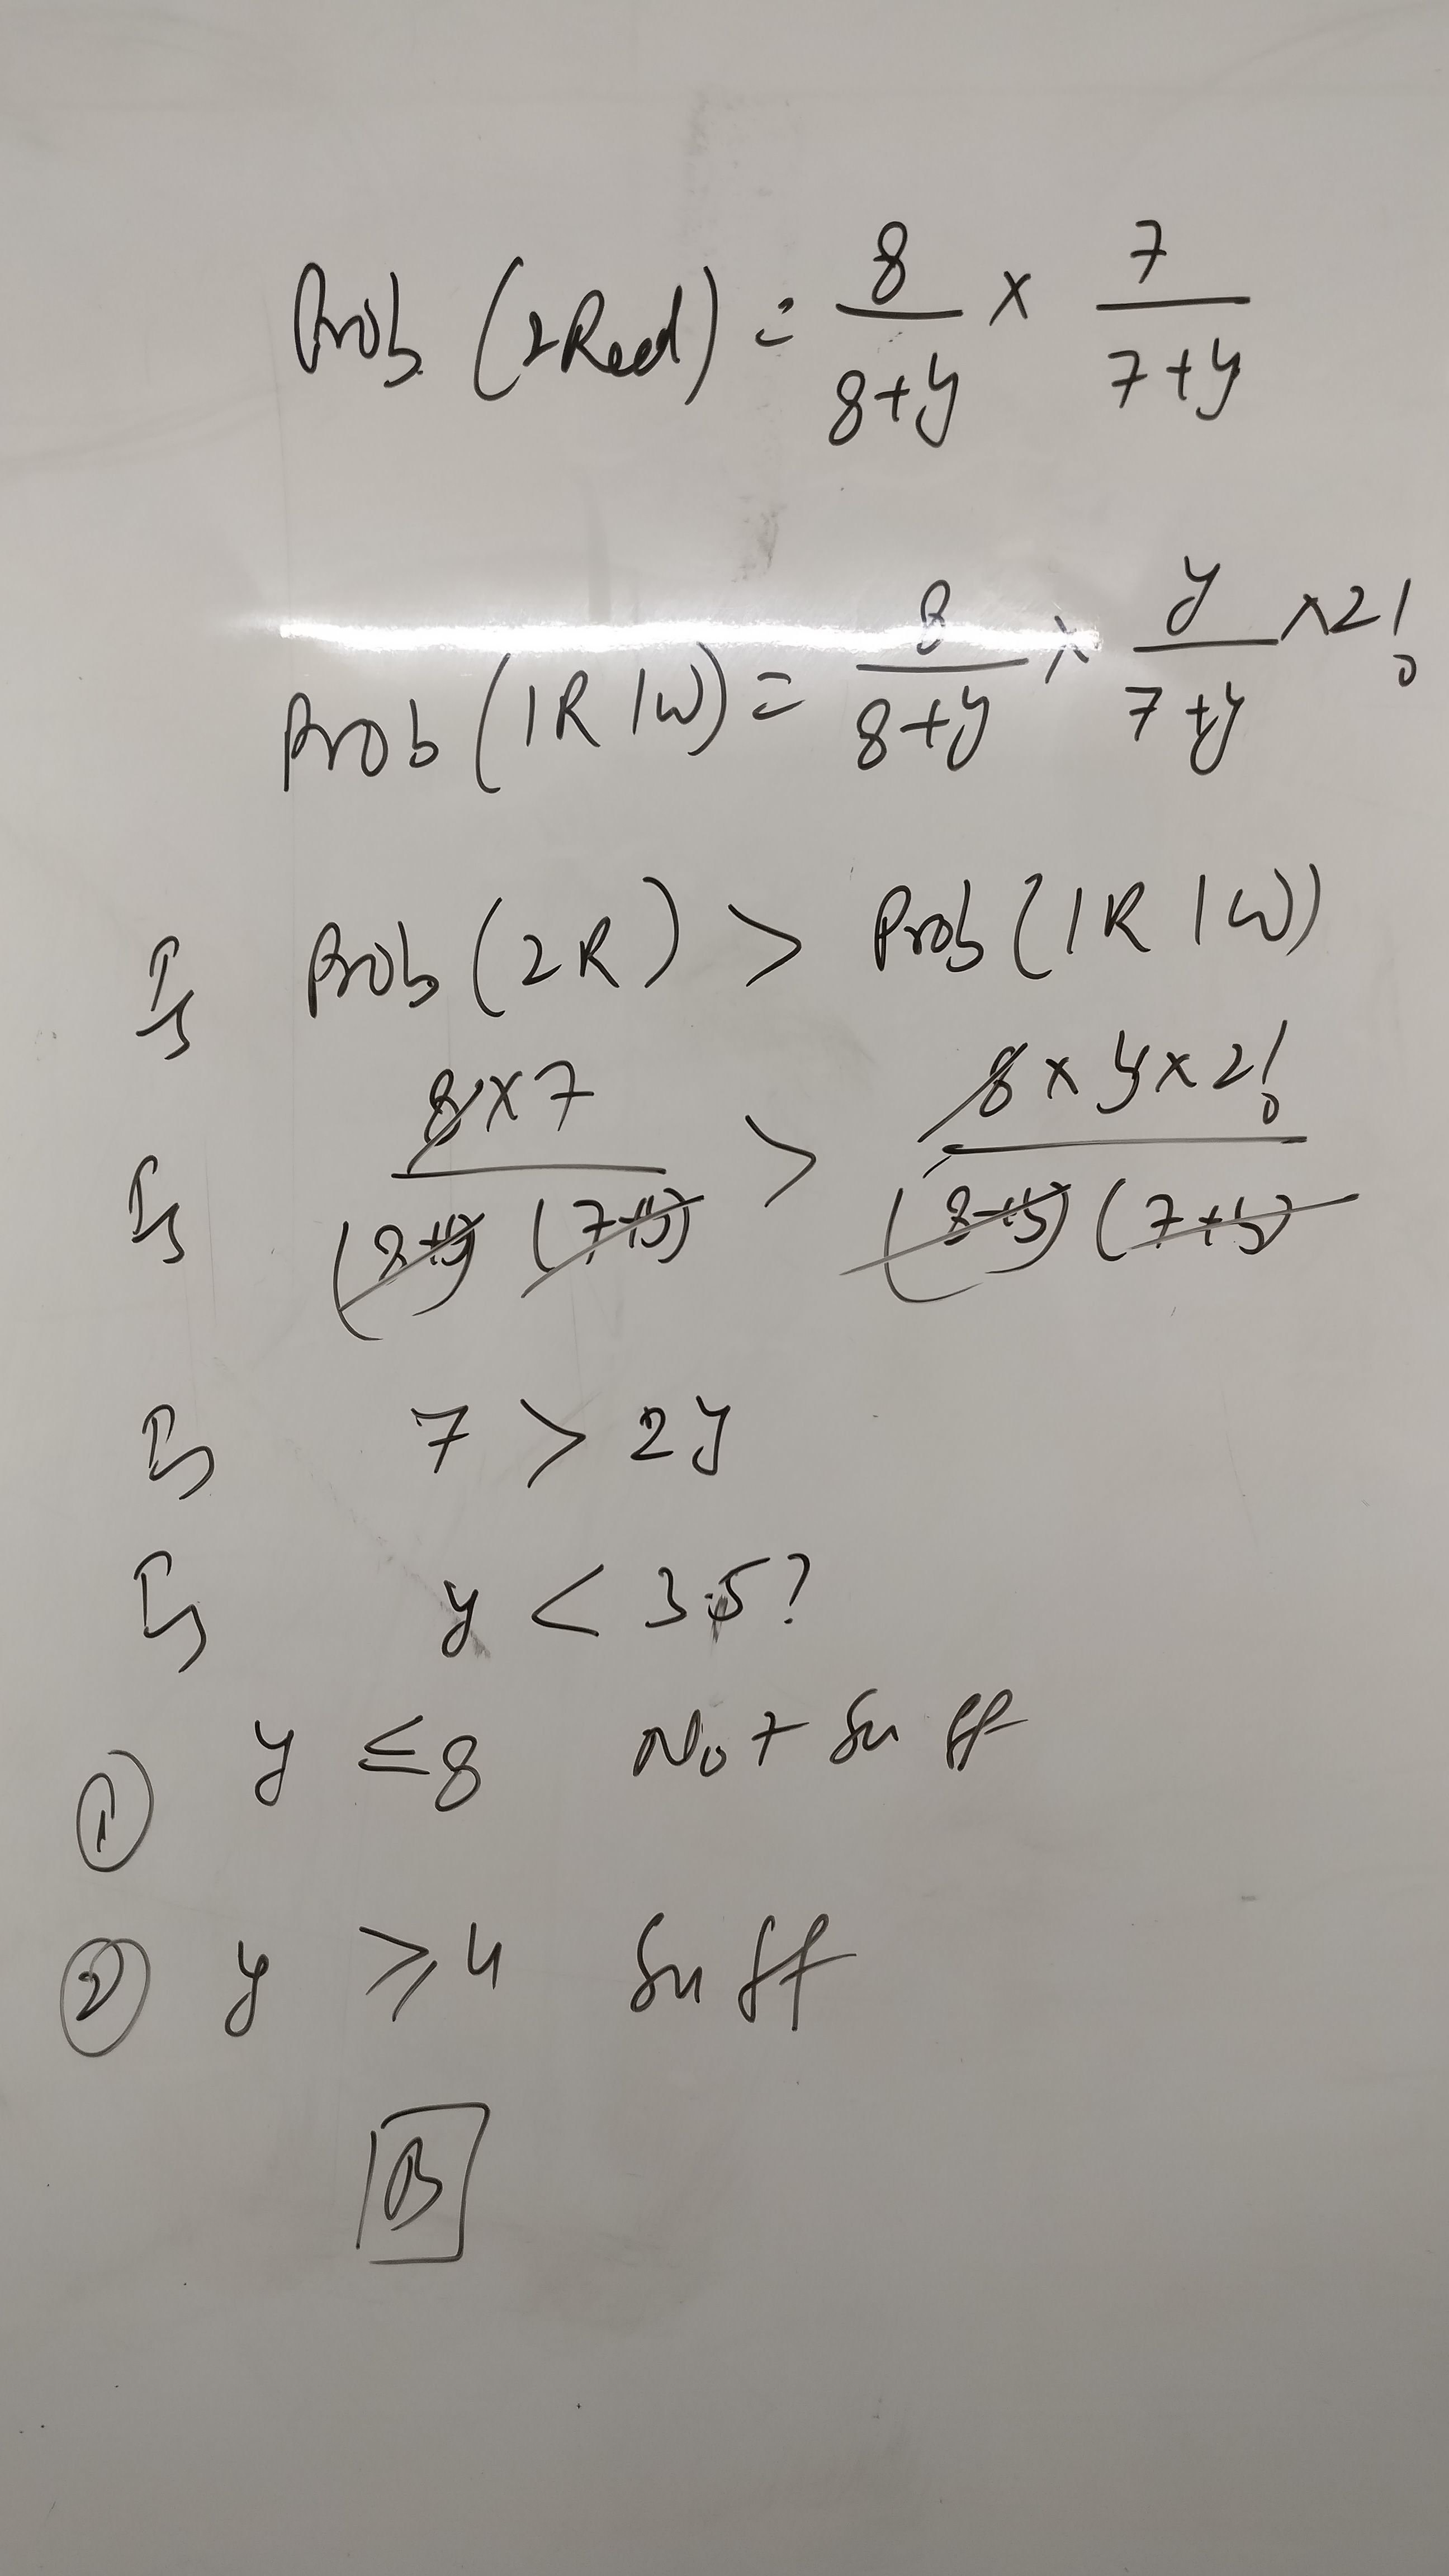 Prob (2Red) = 8/(8+y) × 7/(7+y)
Prob (1R 1W) = 8/(8+y) × y/(7+y) × 2!
Is Prob (2R) > Prob (1R 1W)
Is (8×7)/((8+y)(7+y)) > (8×y×2!)/((8+y)(7+y))
Is 7 > 2y
Is y < 3.5?
① y ≤ 8 Not Suff
② y ≥ 4 Suff
B